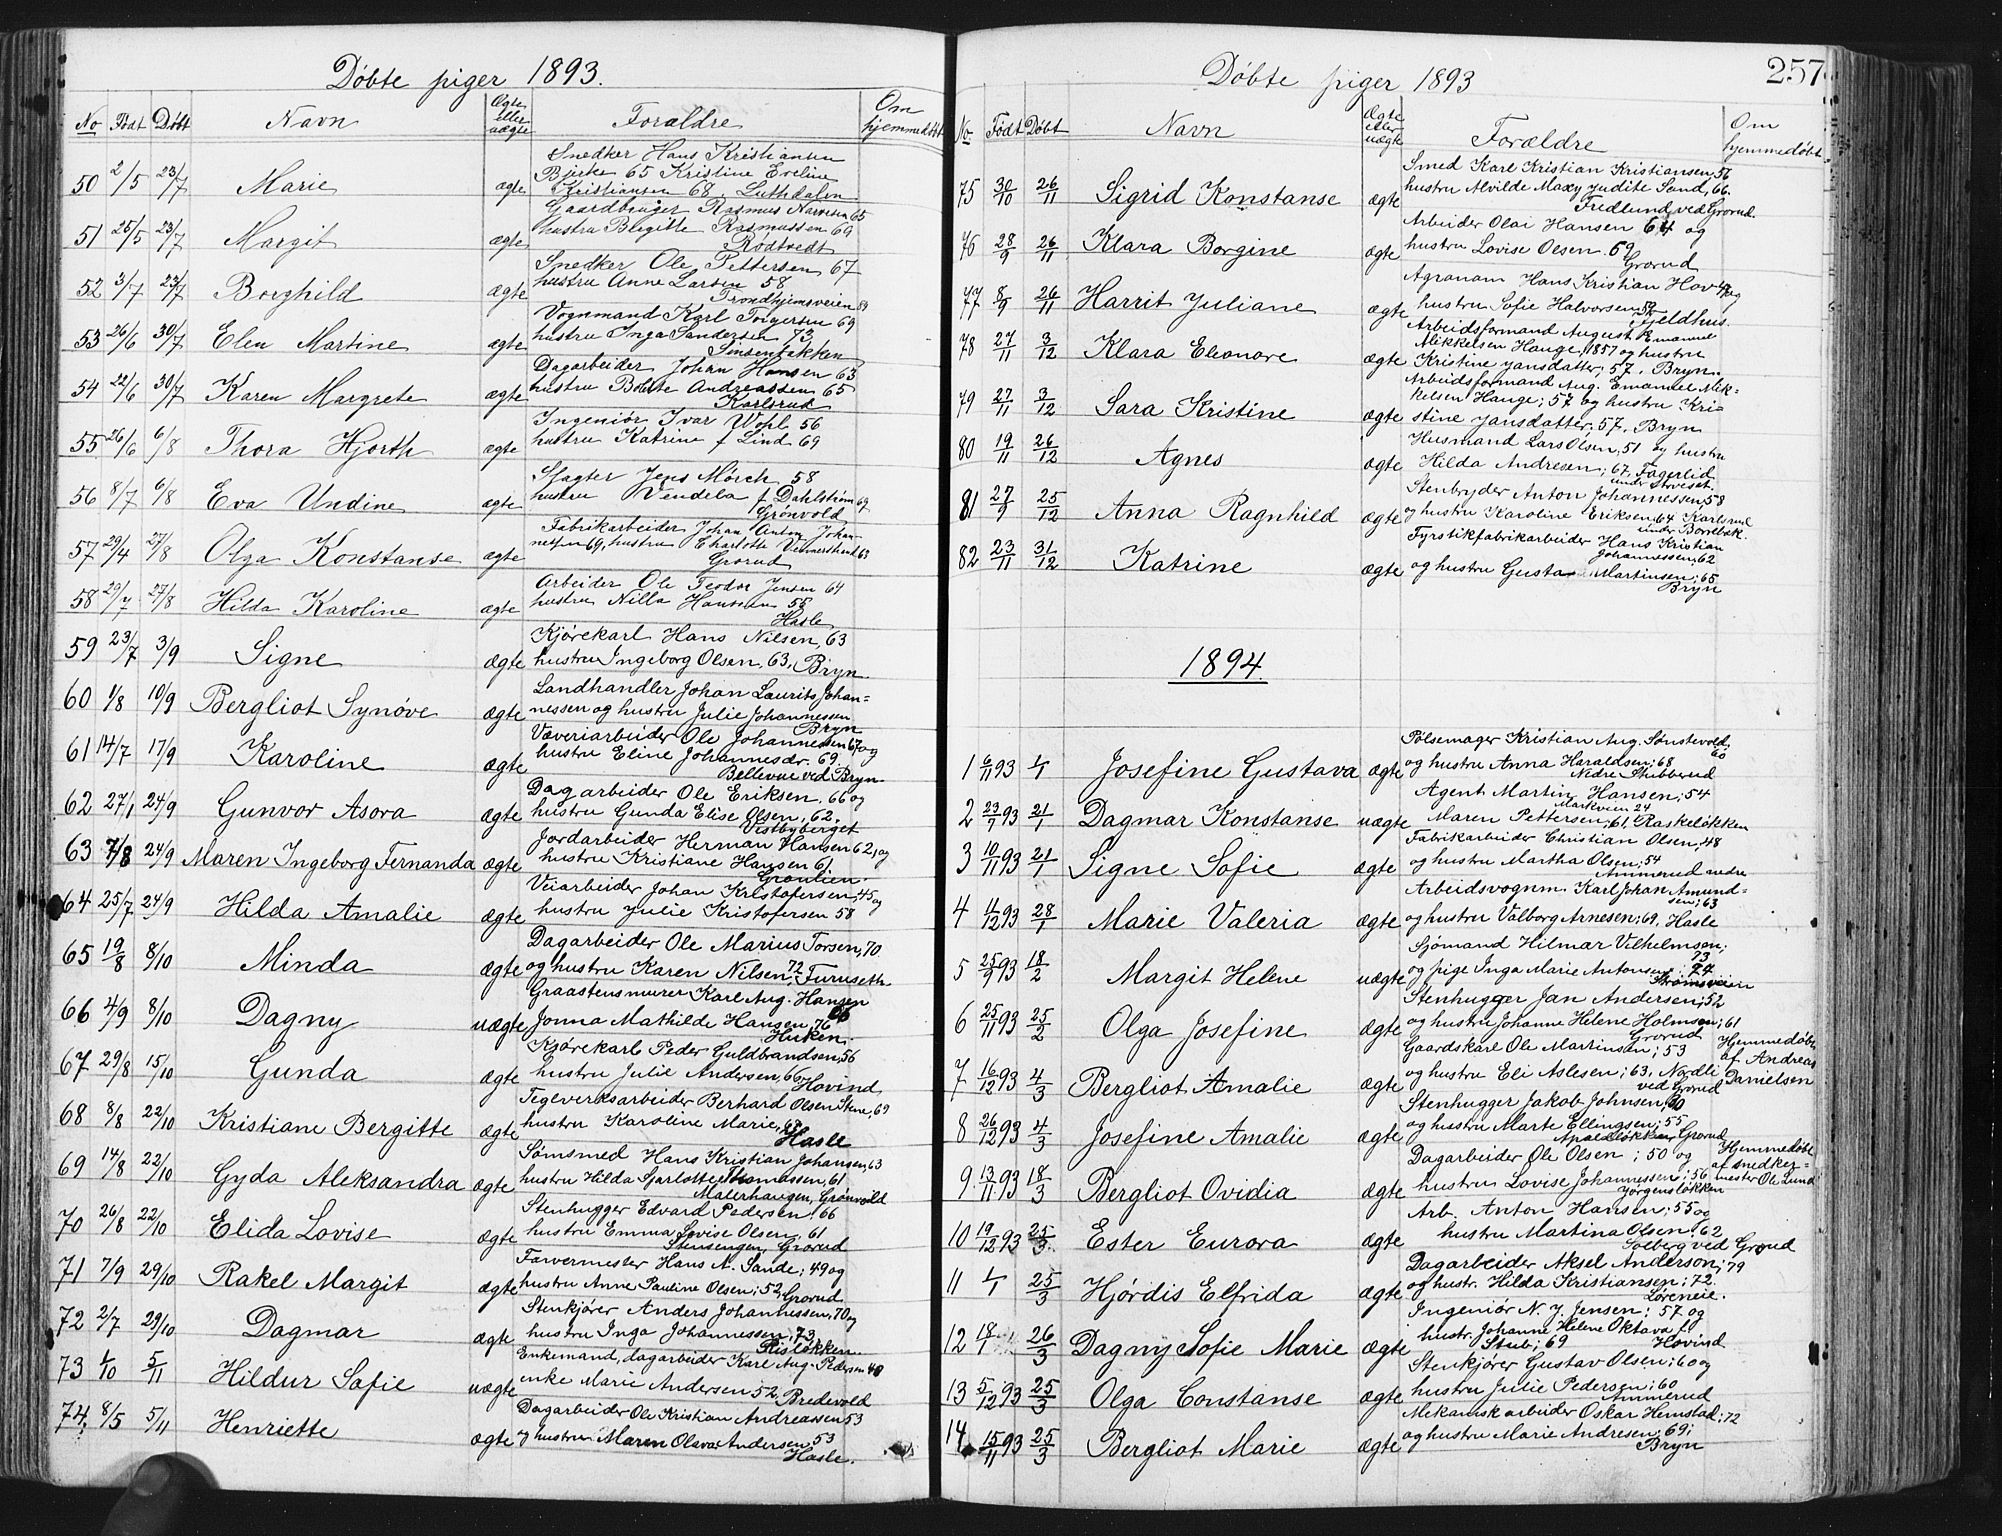 Døbte piger 1893.
No Født Døbt Navn Ægte eller uægte Forældre Om hjemmedøbt
50 2/5 23/7 Marie ægte Snedker Hans Kristiansen
Bjerke 65 Kristine Eveline
Kristiansen 68
51 25/5 23/7 Margit ægte Gaardbruger Rasmus Narvesen 65
hustru Birgitte Rasmussen 69
Rødtvedt
52 3/7 23/7 Borghild ægte Snedker Ole Pettersen 67
hustru Anne Larsen 58
Trondhjemsveien
53 26/6 30/7 Elen Martine ægte Vognmand Karl Torgersen 69
hustru Inga Sandersen 73
Sinsenbakken
54 22/6 30/7 Karen Margrete ægte Dagarbeider Johan Hansen 63
hustru Andreassen 65
Karlsrud
55 26/6 6/8 Thora Hjorth ægte Ingeniør Ivar 56
hustru Katrine f Lind 69
56 8/7 6/8 Eva Undine ægte Slagter Jens Mørch 58
hustru Vendela f Dahlstrøm 69
Grønvold
57 29/4 27/8 Olga Konstanse ægte Fabrikarbeider Johan Anton Johan-
nesen 69, hustru Charlotte 63
Grorud
58 29/7 27/8 Hilda Karoline ægte Arbeider Ole Teodor Jensen 64
hustru Nilla Hansen 55
Hasle
59 23/7 3/9 Signe ægte Kjørekarl Hans Nilsen, 63
hustru Ingeborg Olsen, 63, Bryn
60 1/8 10/9 Bergliot Synøve ægte Landhandler Johan Laurits Johan=
nessen og hustru Julie Johannessen
Bryn
61 14/7 17/9 Karoline ægte Væveriarbeider Ole Johannessen 67 og
hustru Eline Johannesdr. 69
Bellevue ved Bryn
62 27/1 24/9 Gunvor Asora ægte Dagarbeider Ole Eriksen, 66 og
hustru Gunda Elise Olsen, 62.
Østbyberget
63 7/8 24/9 Maren Ingeborg Fernanda ægte Jordarbeider Herman Hansen 62, og
hustru Kristiane Hansen 61
Grønlien
64 25/7 24/9 Hilda Amalie ægte Veiarbeider Johan Kristofersen, 45 og
hustru Julie Kristofersen 58
65 19/8 8/10 Minda ægte Dagarbeider Ole Marius Torsen, 70
og hustru Karen Nilsen, 72, Furuseth
66 4/9 8/10 Dagny uægte Graastensmurer Karl Aug. Hansen 66
Jonna Mathilde Hansen, 76
Huken
67 29/8 15/10 Gunda ægte Kjørekarl Peder Guldbrandsen, 56
hustru Julie Andersen, 66, Hovind
68 8/8 22/10 Kristiane Bergitte ægte Teglverksarbeider Berhard Olsen Stene, 69
hustru Karoline Marie, 63
Hasle
69 14/8 22/10 Gyda Aleksandra ægte Sømsmed Hans Kristian Johansen, 63
hustru Hilda Sjarlotte Thomassen, 61
Malerhaugen, Grønvold
70 26/8 22/10 Elida Lovise ægte Stenhugger Edvard Pedersen, 66
hustru Emma Lovise Olsen, 61
Stensengen, Grorud
71 7/9 29/10 Rakel Margit ægte Farvermester Hans A. Sande; 49 og
hustru Anne Pauline Olsen; 52, Grorud
72 2/7 29/10 Dagmar ægte Stenkjører Anders Johannessen, 70 og
hustru Inga Johannessen, 73
Risløkken
73 1/10 5/11 Hildur Sofie uægte Enkemand, dagarbeider Karl Aug. Pedersen 48
enke Marie Andersen 52, Bredevold
74 8/5 5/11 Henriette ægte Dagarbeider Ole Kristian Andreassen 53
og hustru Maren Olava Andersen, 53
Hasle.
Døbte piger 1893
257
No Født Døbt Navn Ægte eller uægte Forældre Om hjemmedøbt
75 30/10 26/11 Sigrid Konstanse ægte Smed Karl Kristian Kristiansen, 56
hustru Alvilde Maxy Judite Sand, 66.
Fredlund ved Grorud
76 28/9 26/11 Klara Borgine ægte Arbeider Olai Hansen 64 og
hustru Lovise Olsen. 69
Grorud
77 8/9 26/11 Harrit Juliane ægte Agronom Hans Kristian Hov og
hustru Sofie Halvorsen
Fjeldhus.
78 27/11 3/12 Klara Eleonore ægte Arbeidsformand August Emanuel
Mikkelsen Hauge, 1857 og hustru
Kristine Jansdatter, 57. Bryn.
79 27/11 3/12 Sara Kristine ægte Arbeidsformand Aug. Emanuel Mik-
kelsen Hauge; 57 og hustru Kri-
stine Jansdatter. 57. Bryn
80 19/11 26/12 Agnes ægte Husmand Lars Olsen, 51 og hustru
Hilda Andresen; 67, Fagerlid
under Stovset.
81 27/9 25/12 Anna Ragnhild ægte Stenbryder Anton Johannessen, 58
og hustru Karoline Eriksen 64 Karlsrud
under
82 23/11 31/12 Katrine ægte Fyrstikfabrikarbeider Hans Kristian
Johannessen, 62
og hustru Gusta Martinsen; 65
Bryn
1894.
1 6/11 93 1/1 Josefine Gustava ægte Pølsemager Kristian Aug. Sønstevold, 60
og hustru Anna Haraldsen; 68
Nedre Stubberud
2 23/7 93 21/1 Dagmar Konstanse uægte Agent Martin Hansen; 54
Markveien 24
Maren Pettersen; 61, Raskeløkken
3 10/11 93 21/1 Signe Sofie ægte Fabrikarbeider Christian Olsen, 48
og hustru Martha Olsen; 54
Ammerud nedre
4 11/12 93 28/1 Marie Valeria ægte Arbeidsvognm. Karl Johan Amund=
sen; 63
og hustru Valborg Arnesen; 69. Hasle
5 25/9 93 18/2 Margit Helene uægte Sjømand Hilmar Vilhelmsen;
73
og pige Inga Marie Antonsen; 74
Strømsveien
6 25/11 93 25/2 Olga Josefine ægte Stenhugger Jan Andersen; 52
og hustru Johanne Helene Holmsen; 61
Grorud
7 16/12 93 4/3 Bergliot Amalie ægte Gaardskarl Ole Martinsen; 53
og hustru Eli Aslesen; 63, Nordli
ved Grorud
Hjemmedøbt
af Andreas
Danielsen
8 26/12 93 4/3 Josefine Amalie ægte Stenhugger Jakob Johnsen, 50
og husstru Marte Ellingsen; 55
Apalløkken, Grorud
9 13/11 93 18/3 Bergliot Ovidia ægte Dagarbeider Ole Olsen; 50 og
hustru Lovise Johannessen; 56
Jørgensløkken
Hjemmedøbt
af snedker=
mester Ole Lund
10 19/12 93 25/3 Ester Eurora ægte Arb. Anton Hansen; 55 og
hustru Martina Olsen. 62
Solberg ved Grorud
11 1/1 25/3 Hjørdis Elfrida ægte Dagarbeider Aksel Anderson; 79
og hustr. Hilda Kristiansen; 72.
Løreneie.
12 26/3 Dagny Sofie Marie ægte Ingeniør N. J. Jensen; 57 og
hustr. Johanne Helene Oktava f.
Stub; 69 Hovind
13 5/12 93 25/3 Olga Constanse ægte Stenkjører Gustav Olsen; 60 og
hustru Julie Pedersen; 60
Ammerud
14 15/11 93 25/3 Bergliot Marie ægte Mekanisk arbeider Oskar Hemstad; 72
og hustru Marie Andresen; 69;
Bryn